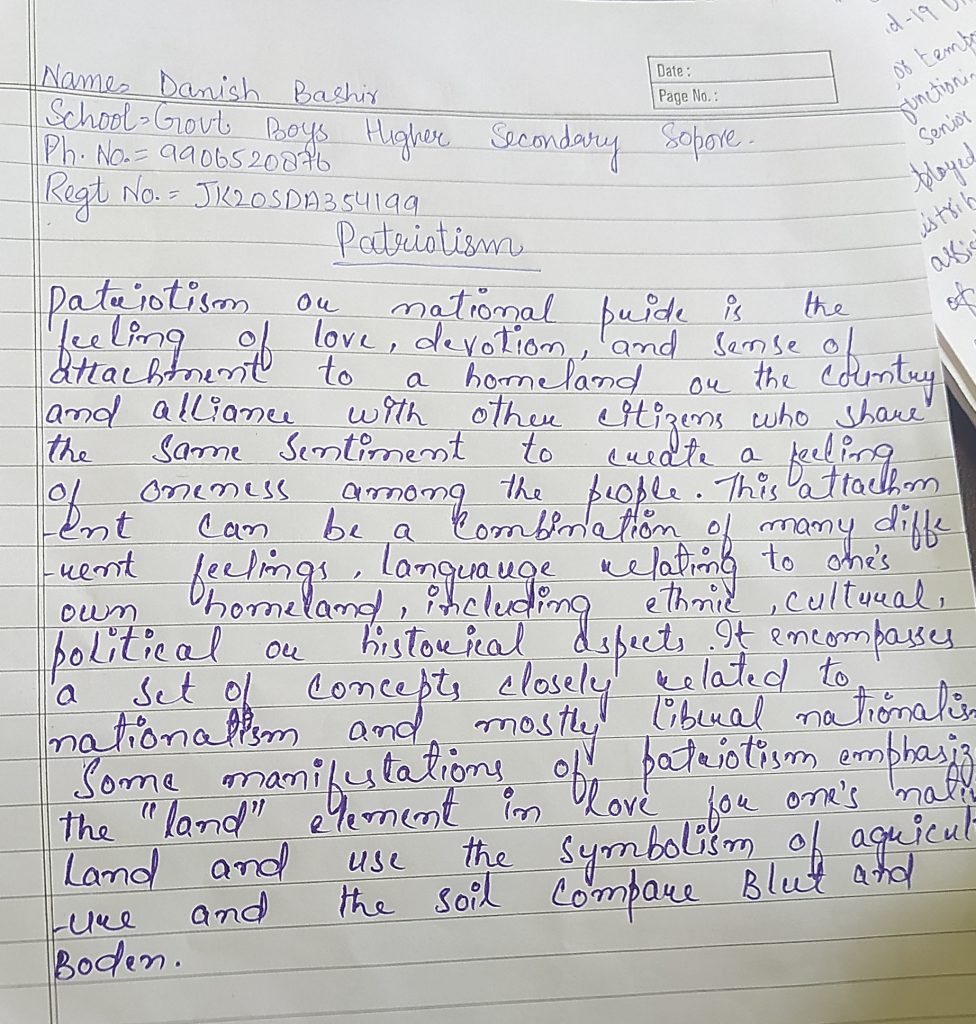 Name= Danish Bashir
Date :
Page No. :
School=Govt Boys Higher Secondary Sopore.
Ph. No.= 9906520876
Regt No. = JK20SDA354199
Patriotism
Patriotism or national pride is the
feeling of love, devotion, and sense of
attachment to a homeland or the country
and alliance with other citizens who share
the same sentiment to create a feeling
of oneness among the people. This attachm
-ent can be a combination of many diffe
-rent feelings, languauge relating to one's
own homeland, including ethnic, cultural,
political or historical aspects. It encompasses
a set of concepts closely related to
nationalism and mostly liberal nationalism
Some manifestations of patriotism emphasiz
the "land" element in love for one's nativ
land and use the symbolism of agricul
-ure and the soil compare Blut and
Boden.
d-19
or temp
functioni
Senior
ployed
istrib
assi
of